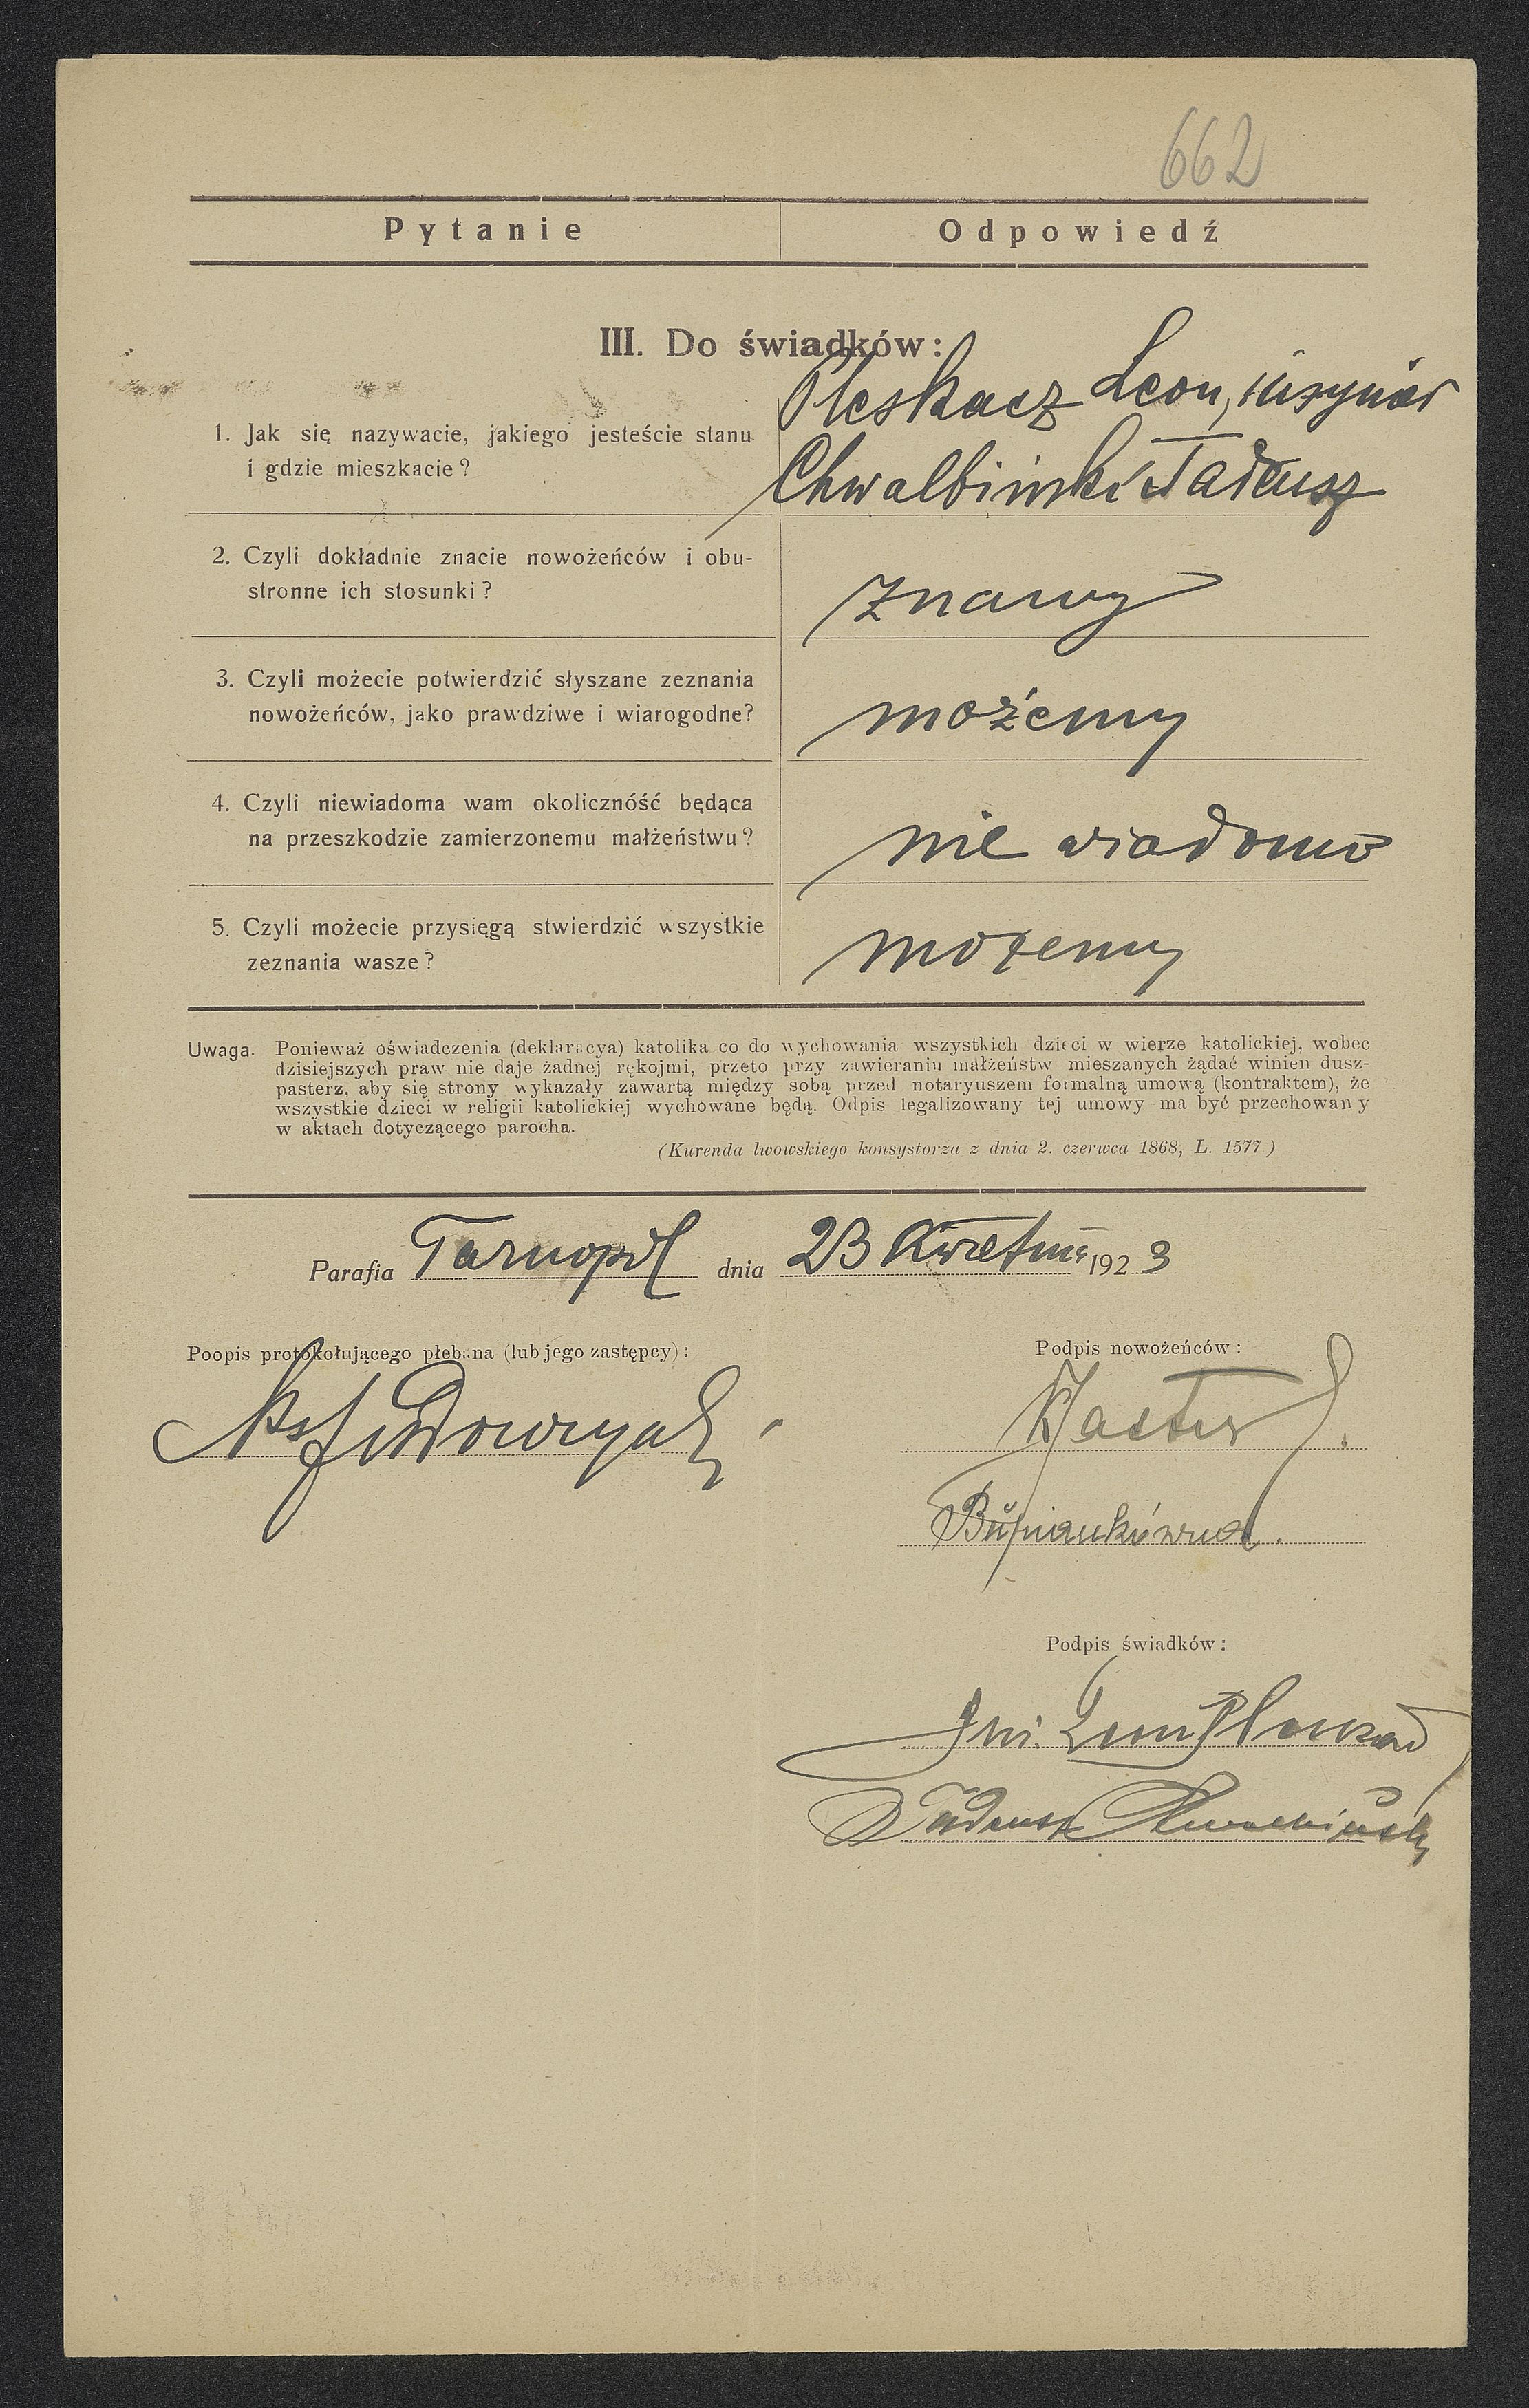 662
Pytanie Odpowiedź
III. Do świadków:
Pleskacz Leon, inżynier
1. Jak się nazywacie, jakiego jesteście stanu
i gdzie mieszkacie?
Chwalbiński Tadeusz
2. Czyli dokładnie znacie nowożeńców i obu-
stronne ich stosunki?
znamy
3. Czyli możecie potwierdzić słyszane zeznania
nowożeńców, jako prawdziwe i wiarogodne?
możemy
4. Czyli niewiadoma wam okolicznóść będąca
na przeszkodzie zamierzonemu małżeństwu?
nie wiadomo
5. Czyli możecie przysięgą stwierdzić wszystkie
zeznania wasze?
możemy
Uwaga. Ponieważ oświadczenia (deklaracya) katolika co do wychowania wszystkich dzieci w wierze katolickiej, wobec
dzisiejszych praw nie daje żadnej rękojmi, przeto przy zawieraniu małżeństw mieszanych żądać winien dusz-
pasterz, aby się strony wykazały zawartą między sobą przed notaryuszem formalną umową (kontraktem), że
wszystkie dzieci w religii katolickiej wychowane będą. Odpis legalizowany tej umowy ma być przechowany
w aktach dotyczącego parocha.
(Kurenda lwowskiego konsystorza z dnia 2. czerwca 1868, L. 1577)
Parafia Tarnopol dnia 23 Kwietnia 1923
Poopis protokołującego płebana (lub jego zastępcy):
Podpis nowożeńców:
Ks
Podpis świadków:
Leon
Tadeusz Chwalbiński